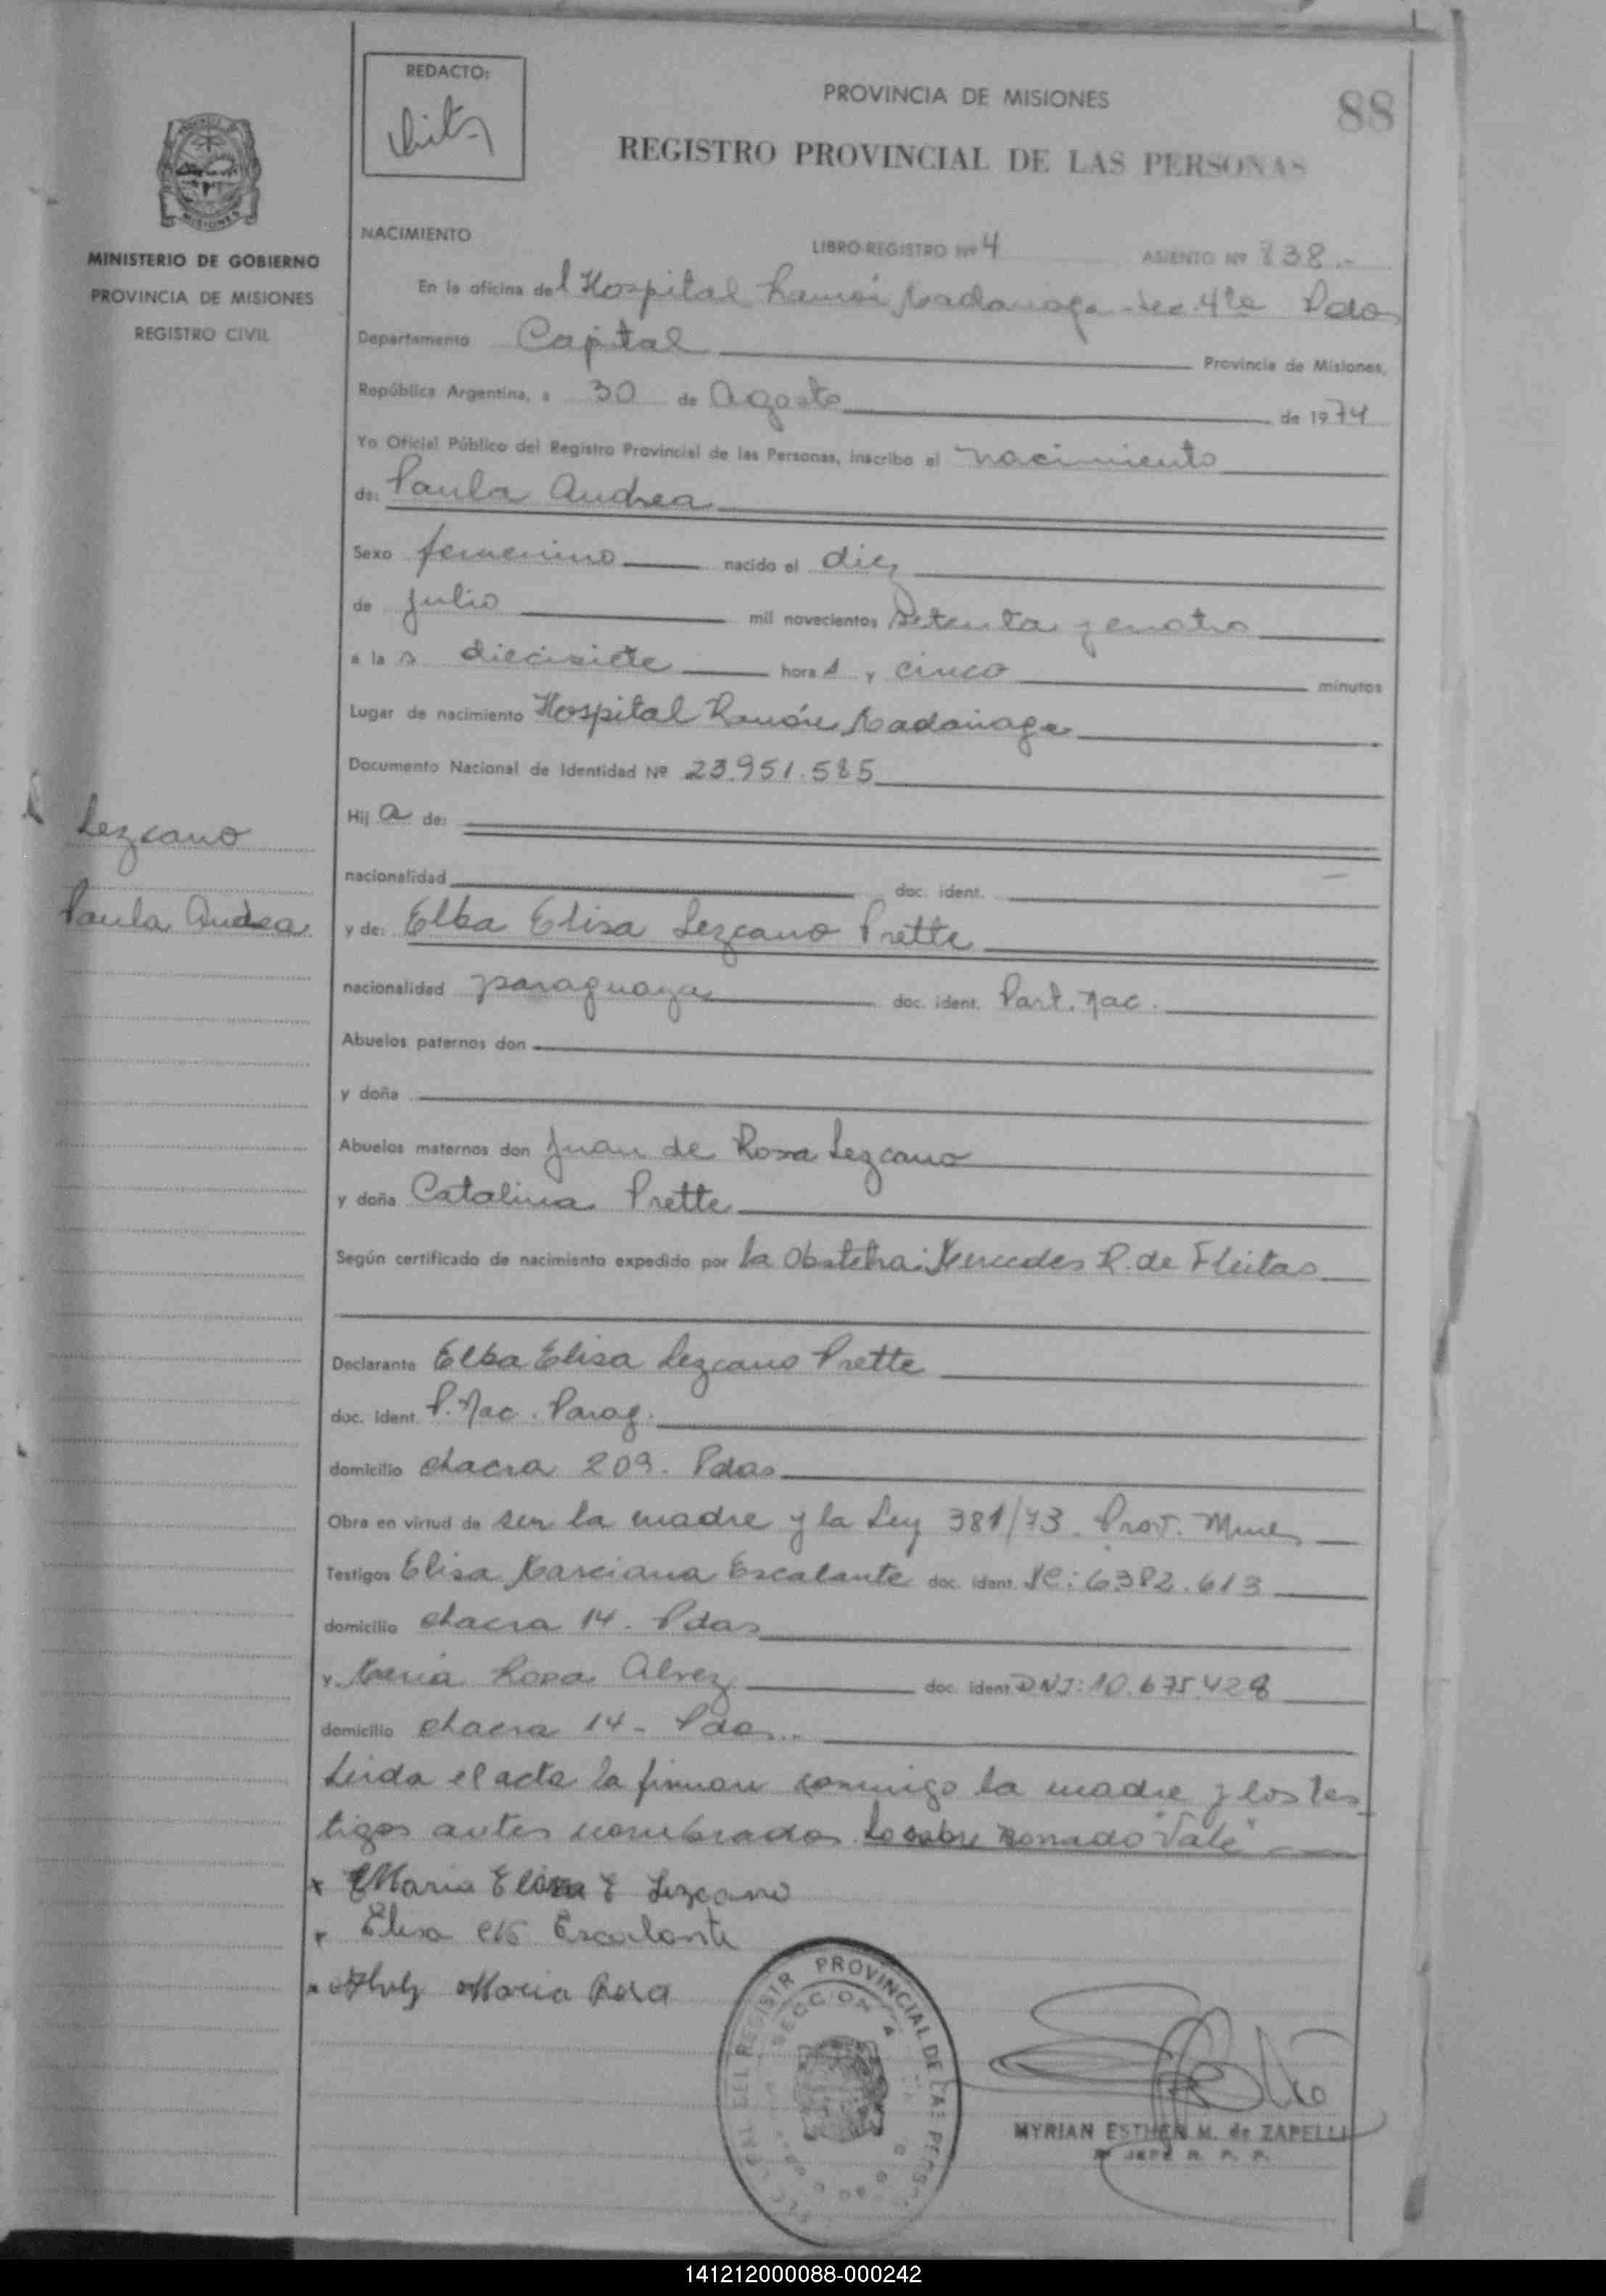 REDACTO:
PROVINCIA DE MISIONES
88
REGISTRO PROVINCIAL DE LAS PERSONAS
MISIONES
MINISTERIO DE GOBIERNO
PROVINCIA DE MISIONES
REGISTRO CIVIL
NACIMIENTO LIBRO-REGISTRO Nº 4 ASIENTO Nº 838.-
En la oficina del Hospital Ramón Madariaga - Sec. 4ta Pdas
Departamento Capital Provincia de Misiones,
República Argentina, a 30 de Agosto de 1974
Yo Oficial Público del Registro Provincial de las Personas, inscribo el nacimiento
de: Paula Andrea
Sexo femenino nacido el diez
de julio mil novecientos setenta y cuatro
a la s diecisiete hora s y cinco minutos
Lugar de nacimiento Hospital Ramón Madariaga
Documento Nacional de Identidad Nº 23.951.585
Hij a de:
Lezcano
Paula Andrea
nacionalidad doc. ident.
y de: Elba Elisa Lezcano Prette
nacionalidad paraguaya doc. ident. Part. Nac.
Abuelos paternos don
y doña
Abuelos maternos don Juan de Rosa Lezcano
y doña Catalina Prette
Según certificado de nacimiento expedido por la Obstetra: Mercedes R. de Fleitas
Declarante Elba Elisa Lezcano Prette
doc. ident. P. Nac. Parag.
domicilio chacra 209. Pdas
Obra en virtud de ser la madre y la Ley 381/73. Prov. Mnes
Testigos Elisa Marciana Escalante doc. ident. LC: 6.382.613
domicilio chacra 14. Pdas
y María Rosa Alvez doc. ident. DNI: 10.675.428
domicilio chacra 14 - Pdas.-
Leida el acta la firman conmigo la madre y los tes
tigos antes nombrados. Lo sobre borrado "Vale"
x Maria Elisa E Lezcano
x Elisa M Escalante
x Alvez Maria Rosa
REGISTR PROVINCIAL DE LAS PERSO
SECCION 4
MYRIAN ESTHER M. de ZAPELLI
JEFE R. P. P.
141212000088-000242